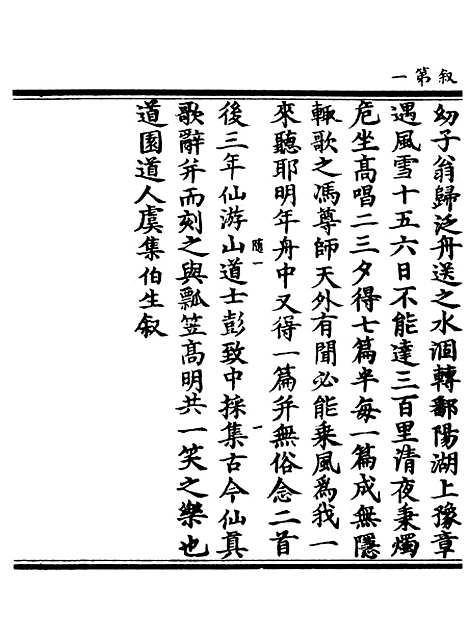 叙第一
幼子翁歸泛舟送之水涸轉鄱陽湖上豫章
遇風雪十五六日不能達三百里清夜秉燭
危坐高唱二三夕得七篇半每一篇成無隱
輒歌之馮尊師天外有聞必能乘風為我一
來聽耶明年舟中又得一篇并無俗念二首
隨一
一
後三年仙游山道士彭致中採集古今仙真
歌辭并而刻之與瓢笠高明共一笑之樂也
道園道人虞集伯生叙